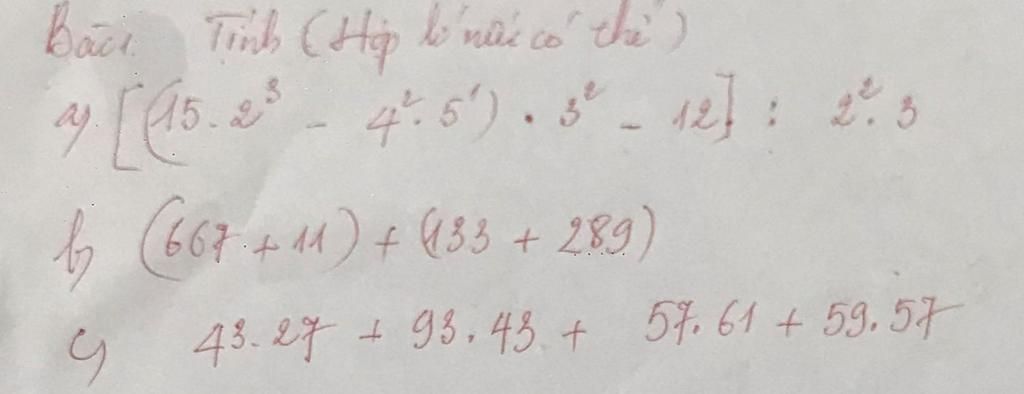 Bài 1. Tính (Hợp lí nếu có thể)
a). [(15.2³ - 4².5¹) . 3² - 12] : 2².3
b) (667 + 11) + (133 + 289)
c) 43.27 + 93.43 + 57.61 + 59.57